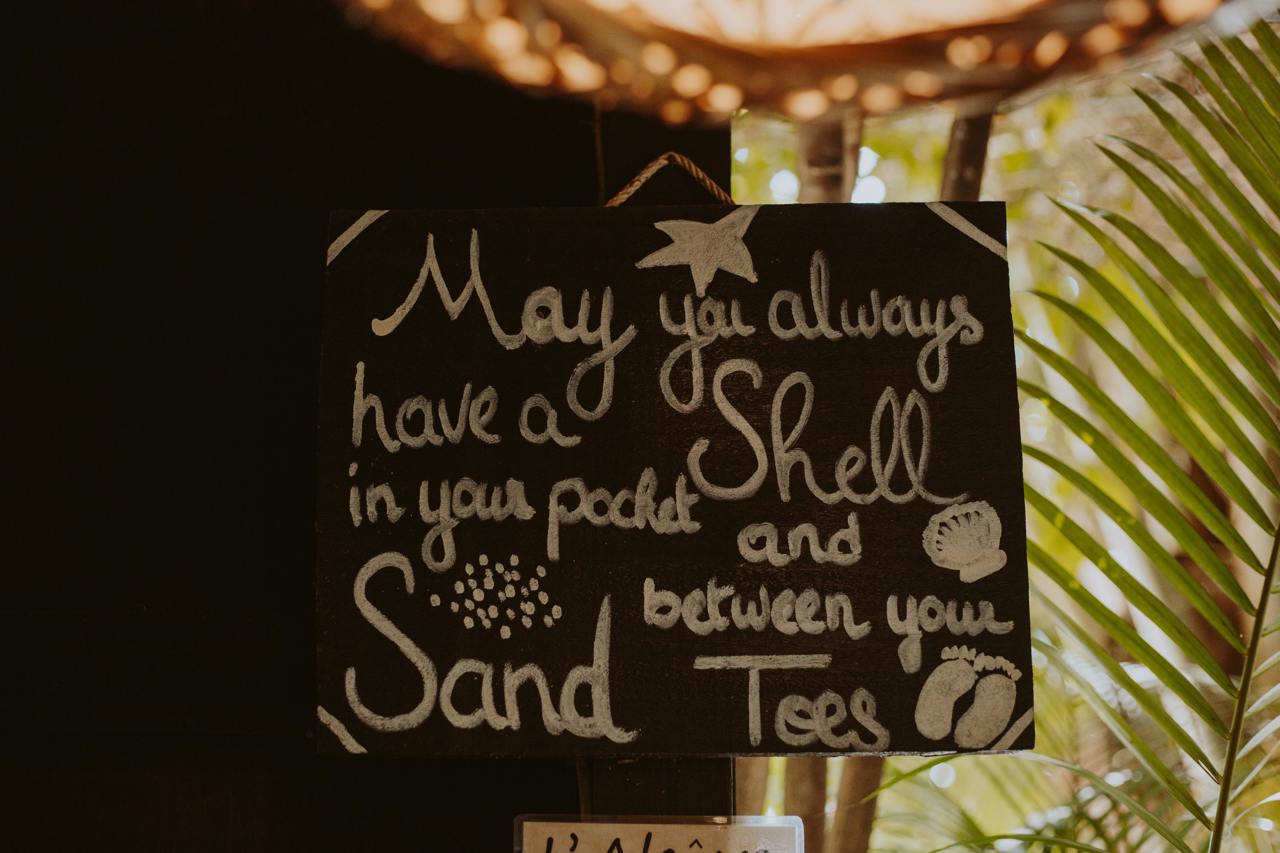 May you always
have a Shell
in your pocket
and
Sand between your
Toes